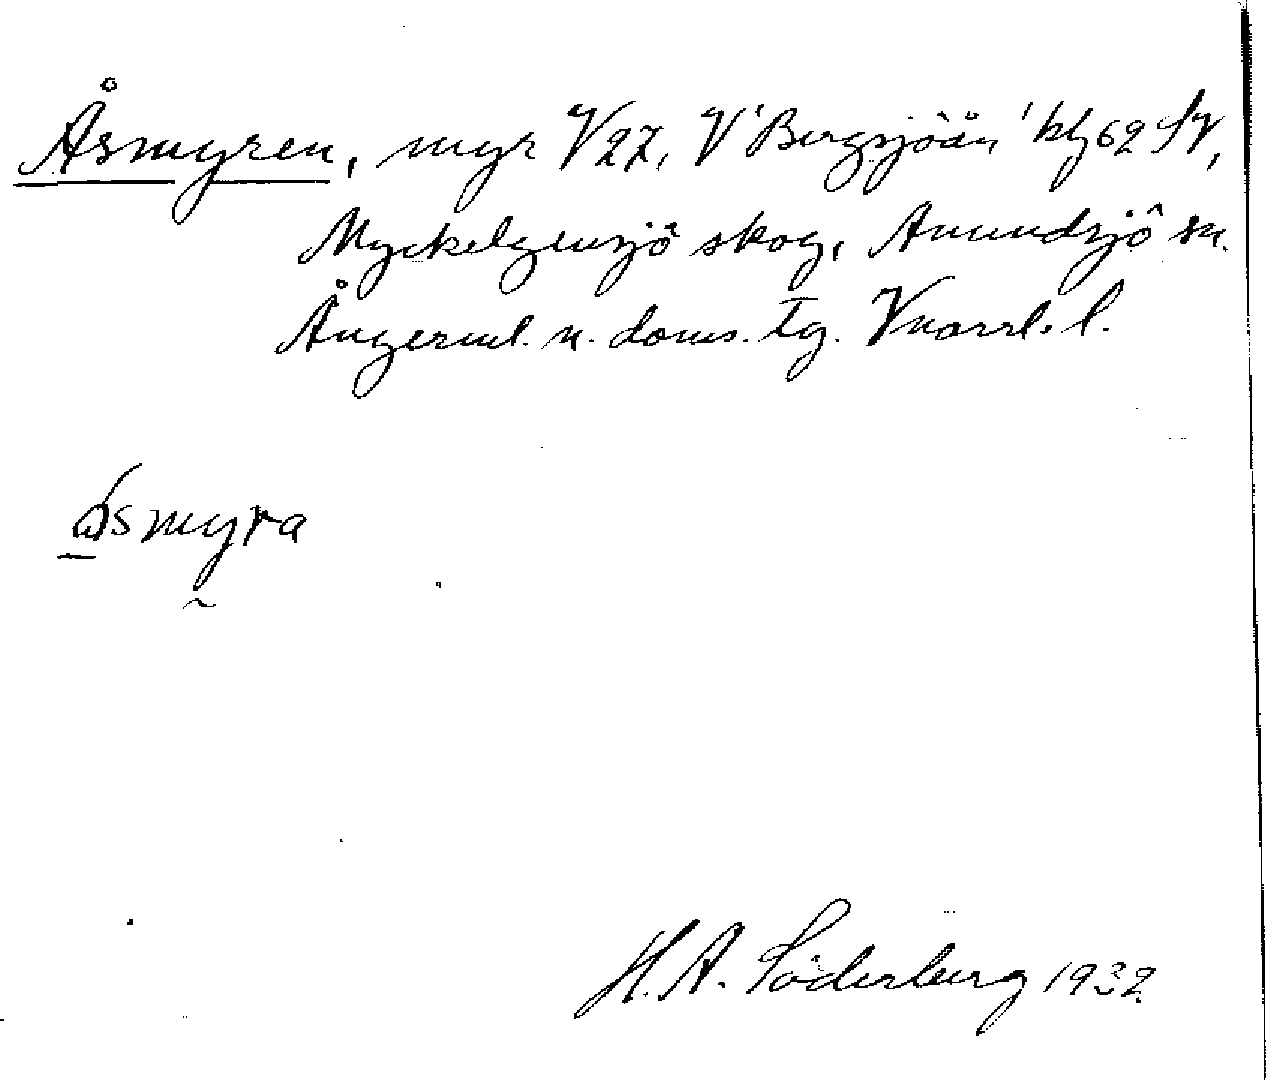 Åsmyren, myr V27, V 'Bergsjöån' klj 62 SV,
Myckelgensjö skog, Anundsjö sn.
Ångerml. n. doms. tg. Vnorrl. l.
åsmyra
H. A. Söderberg 1932